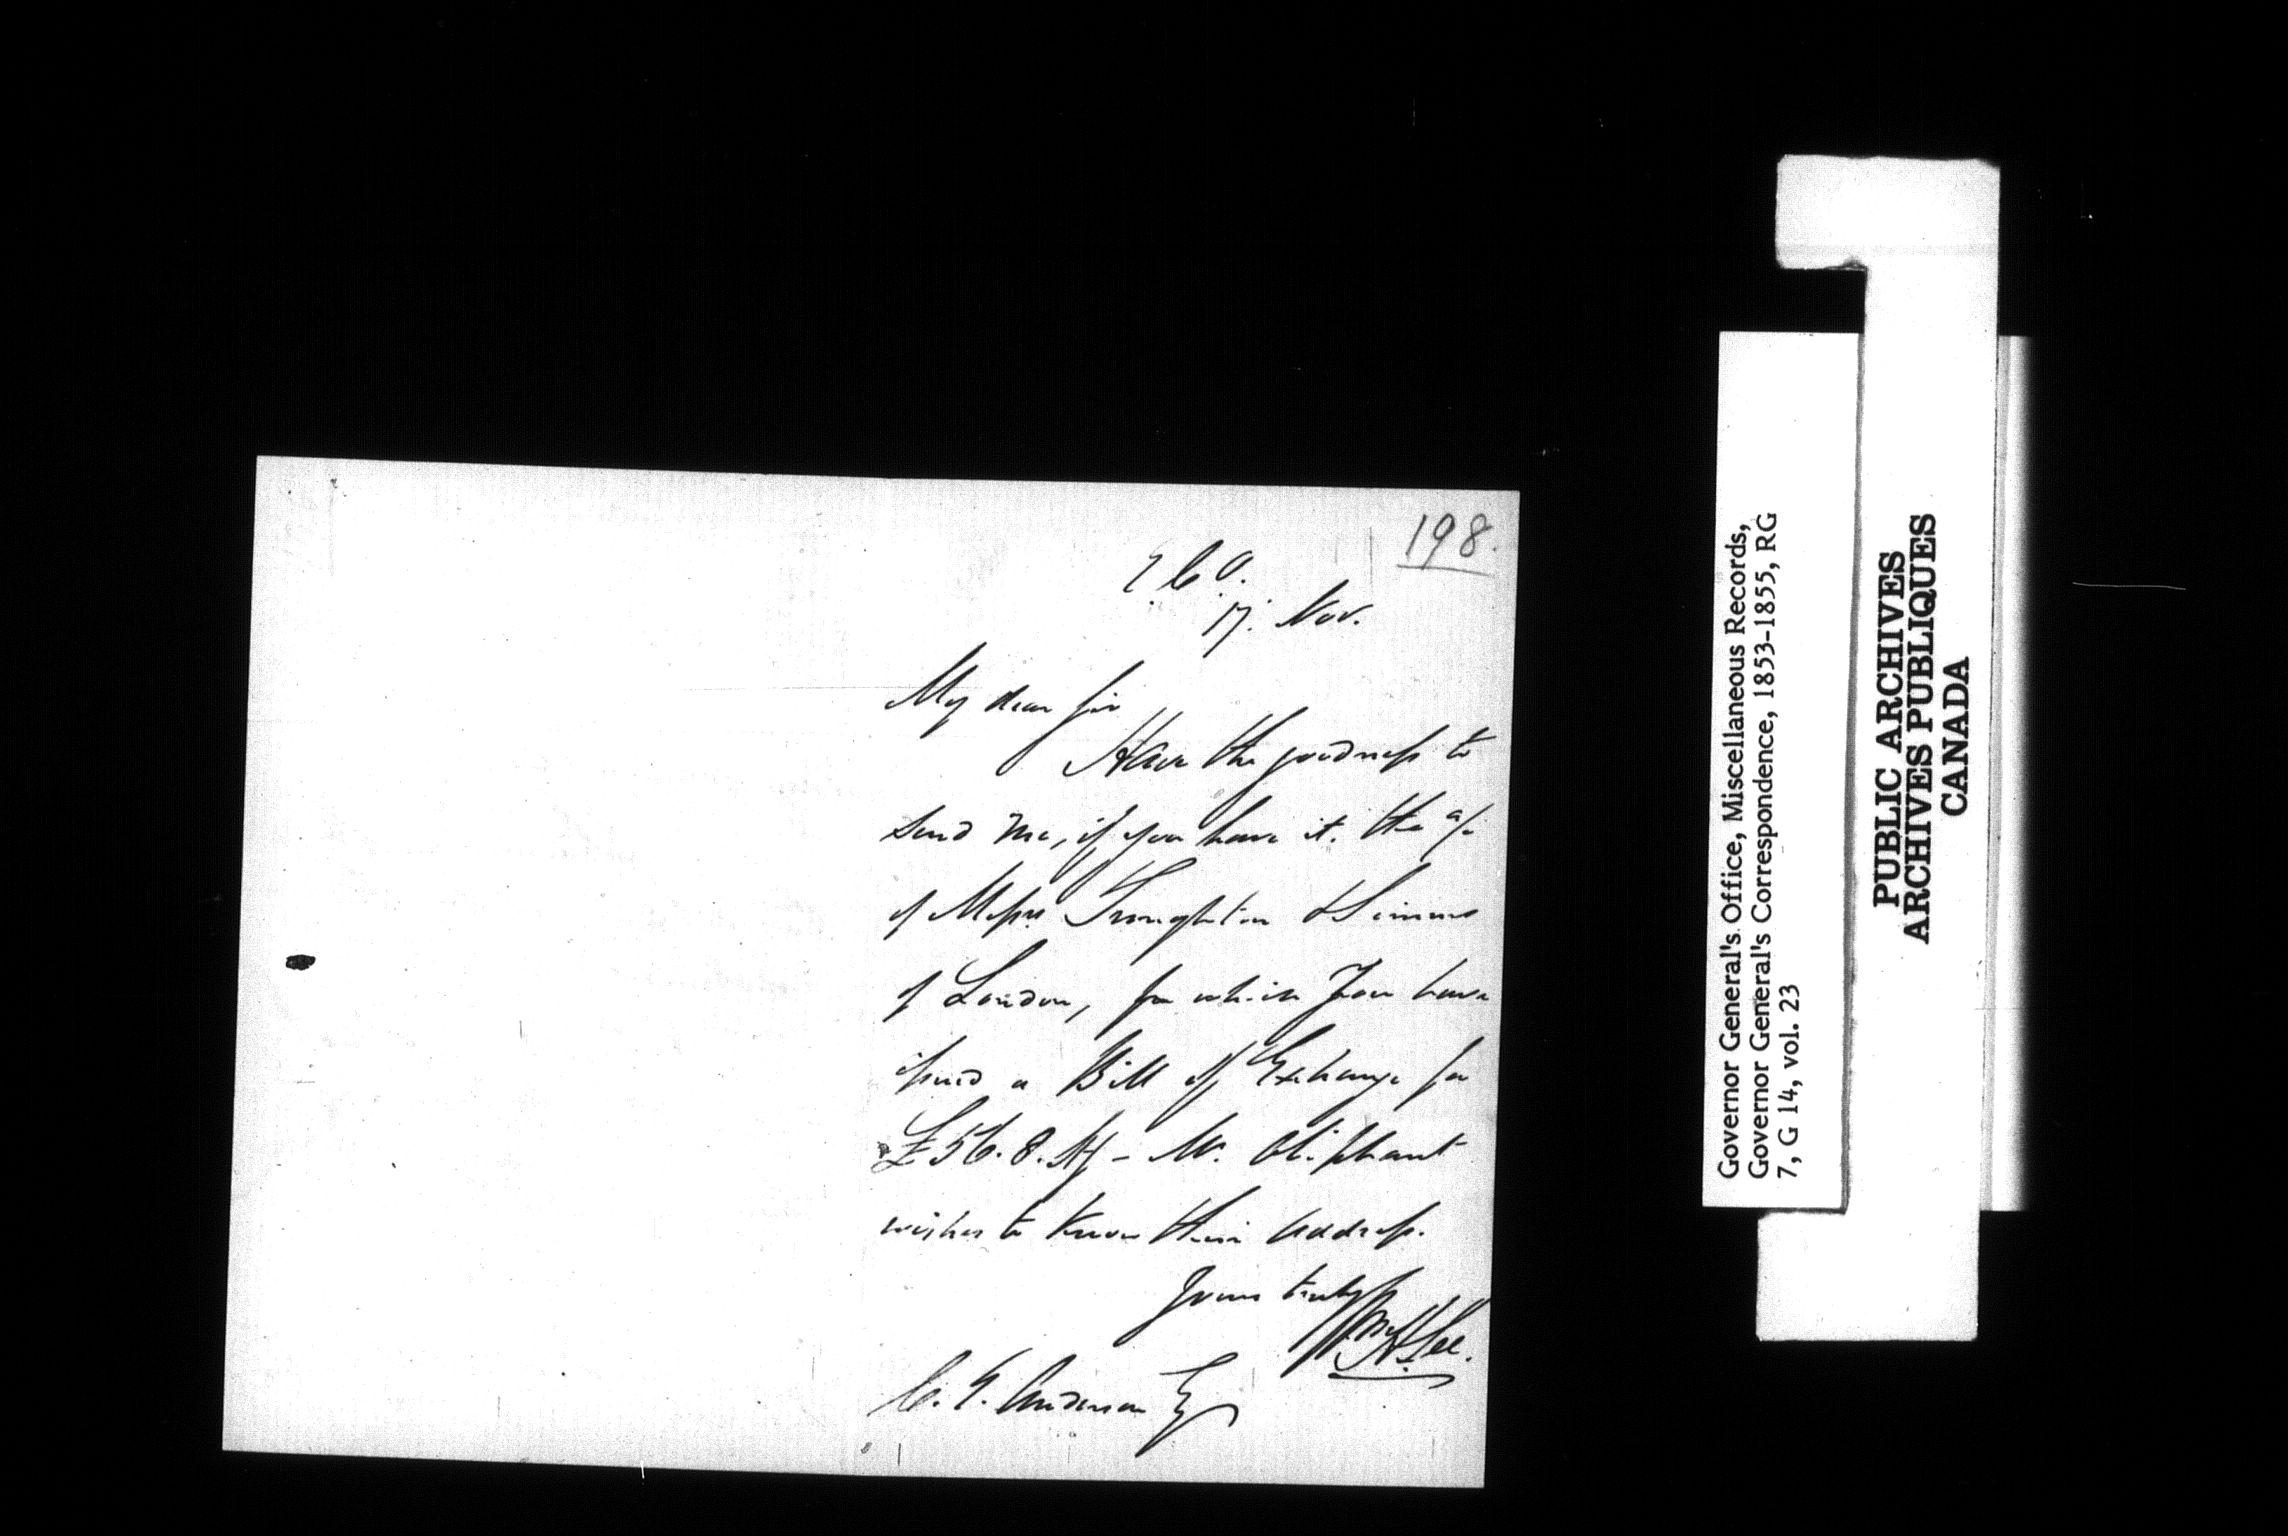 198.
E.C.O.
17. Nov.
My dear Sir
Have the goodness to
send me, if you have it, the a/c
of Messrs Troughton & Simms
of London, for which you have
issued a Bill of Exchange for
£56.8. Stg - Mr. Oliphant
wishes to know their address.
Yours truly
Wm H Lee.
C. E. Anderson Esq
Governor General's Office, Miscellaneous Records,
Governor General's Correspondence, 1853-1855, RG
7, G 14, vol. 23
PUBLIC ARCHIVES
ARCHIVES PUBLIQUES
CANADA